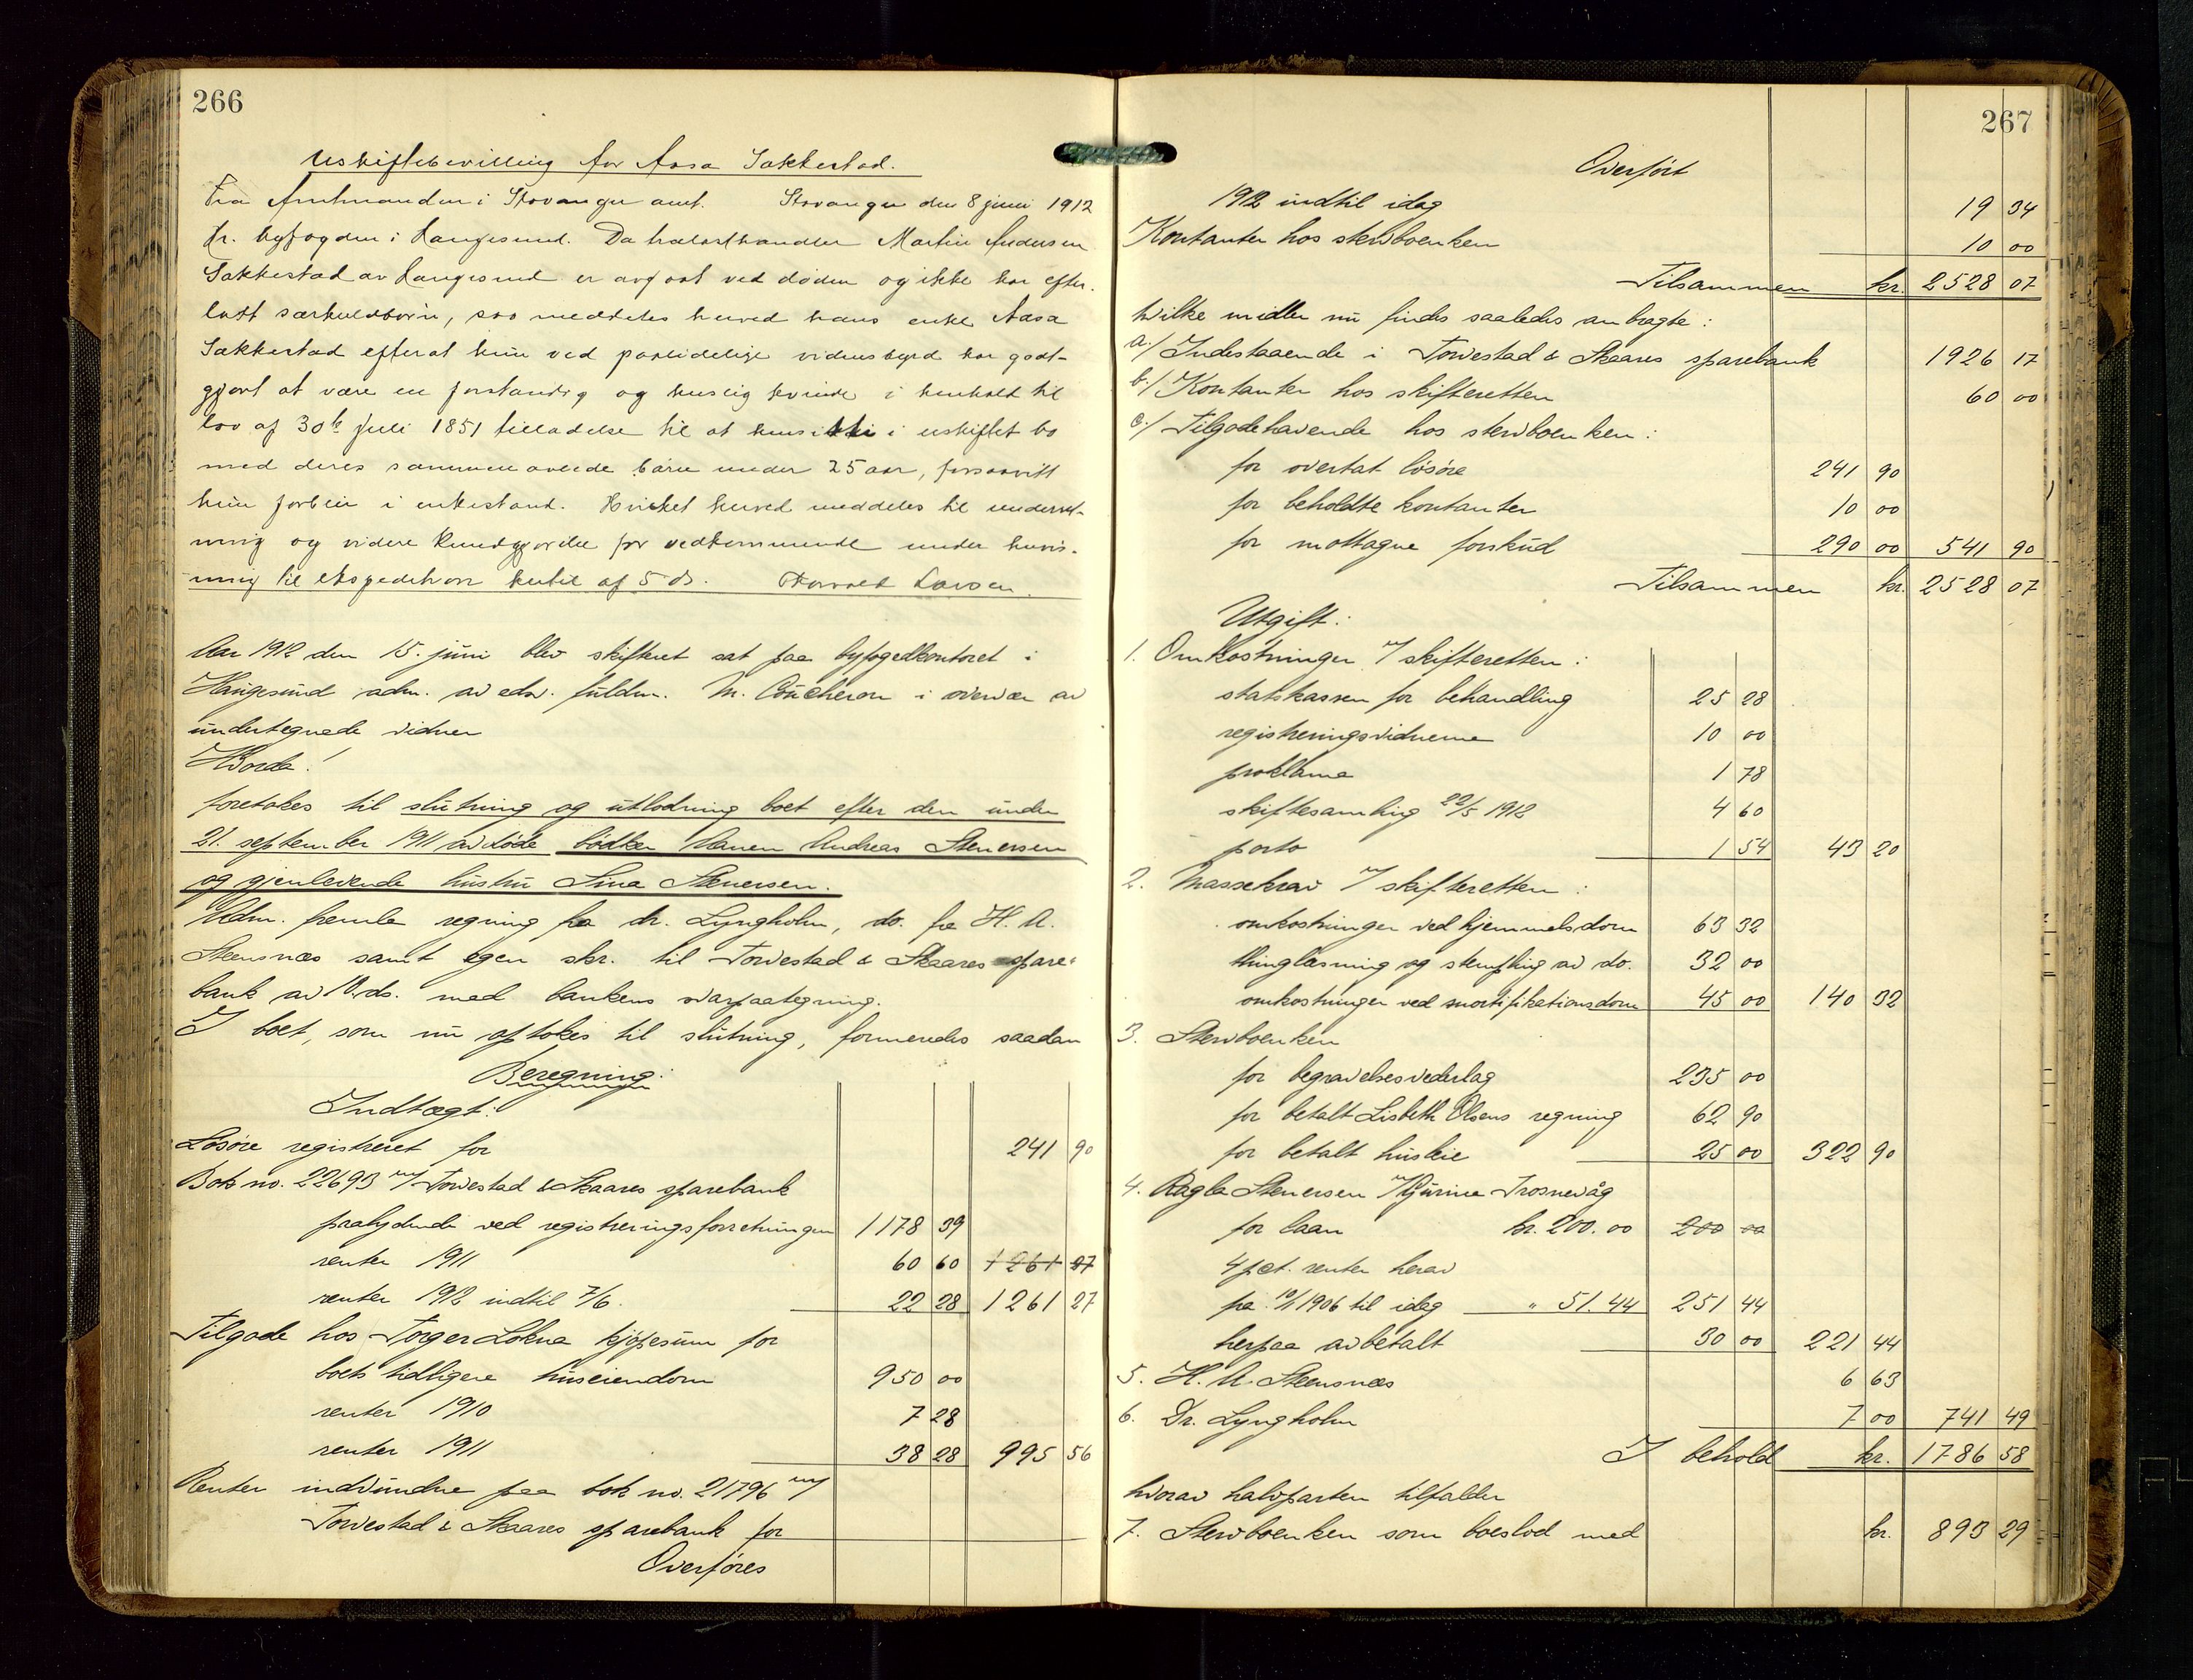 266
Uskiftebevilling for Aasa Sakkestad.
Fra Amtmanden i Stavanger amt. Stavanger den 8 juni 1912
Hr. byfogden i Haugesund. Da trælasthandler Martin Andersen
Sakkestad av Haugesund er avgaat ved døden og ikke har efter-
latt særkuldbørn, saa meddeles herved hans enke Aasa
Sakkestad efterat hun ved paalidelige vidnesbyrd har godt-
gjort at være en forstandig og huslig kvinde i henhold til
lov af 30te Juli 1851 tilladelse til at hensitte i uskiftet bo
med deres sammen avlede børn under 25 aar, forsaavitt
hun forblir i enkestand. Hvilket herved meddeles til underret-
ning og videre kundgjørelse for vedkommende under henvis-
ning til ekspedition hertil af 5 ds. Thorvald Larsen.
Aar 1912 den 15. juni blev skifteret sat paa byfogedkontoret i
Haugesund adm. av edsv. fuldm. M. Coucheron i overvær av
undertegnede vidner
Hvorda!
foretokes til slutning og utlodning boet efter den under
21. september 1911 avdøde bødker Maren Andreas Stenersen
og gjenlevende hustru Sina Stenersen.
Adm. fremla regning fra dr. Lyngholm, do. fra H. A.
Steensnæs samt egen skr. til Torvestad & Skaares spare-
bank av 10. ds. med bankens svarpaategning.
I boet, som nu optokes til slutning, formeredes saadan
Beregning:
Indtægt:
Løsøre registreret for 241 90
Bok no. 22693 m/ Torvestad & Skaares sparebank
paalydende ved registreringsforretningen 1178 39
renter 1911 60 60 1261 27
renter 1912 indtil 7/6. 22 28 1261 27
Tilgode hos Torger Lokna kjøpesum for
boets tidligere huseiendom 950 00
renter 1910 7 28
renter 1911 38 28 995 56
Renter indvundne paa bok no. 21796 m/
Torvestad & Skaares sparebank for
Overføres
267
Overført
1912 indtil idag 19 34
Kontanter hos stervboenken 10 00
Tilsammen kr. 2528 07
hvilke midler nu findes saaledes anbragte:
a./ Indestaaende i Torvestad & Skaares sparebank 1926 17
b./ Kontanter hos skifteretten 60 00
c./ Tilgodehavende hos stervboenken:
for overtat løsøre 241 90
for beholdte kontanter 10 00
for mottagne forskud 290 00 541 90
Tilsammen kr. 2528 07
Utgift:
1. Omkostninger m/ skifteretten:
statskassen for behandling 25 28
registreringsvidnerne 10 00
proklama 1 78
skiftesamling 22/5 1912 4 60
porto 1 54 43 20
2. Massekrav m/ skifteretten:
omkostninger ved hjemmelsdom 63 32
thinglæsning og stempling av do. 32 00
omkostninger ved mortifikationsdom 45 00 140 32
3. Stervboenken
for begravelsesvederlag 235 00
for betalt Lisbeth Olsens regning 62 90
for betalt husleie 25 00 322 90
4. Ragla Stenersen m/ Gurine Trosnevåg
for laan kr. 200.00 200 00
4 pct. renter herav
fra 10/1 1906 til idag " 51.44 251 44
herpaa avbetalt 30 00 221 44
5. H. A. Steensnæs 6 63
6. Dr. Lyngholm 7 00 741 49
I behold kr. 1786 58
hvorav halvparten tilfalder
7. Stervboenken som boeslod med kr. 893 29